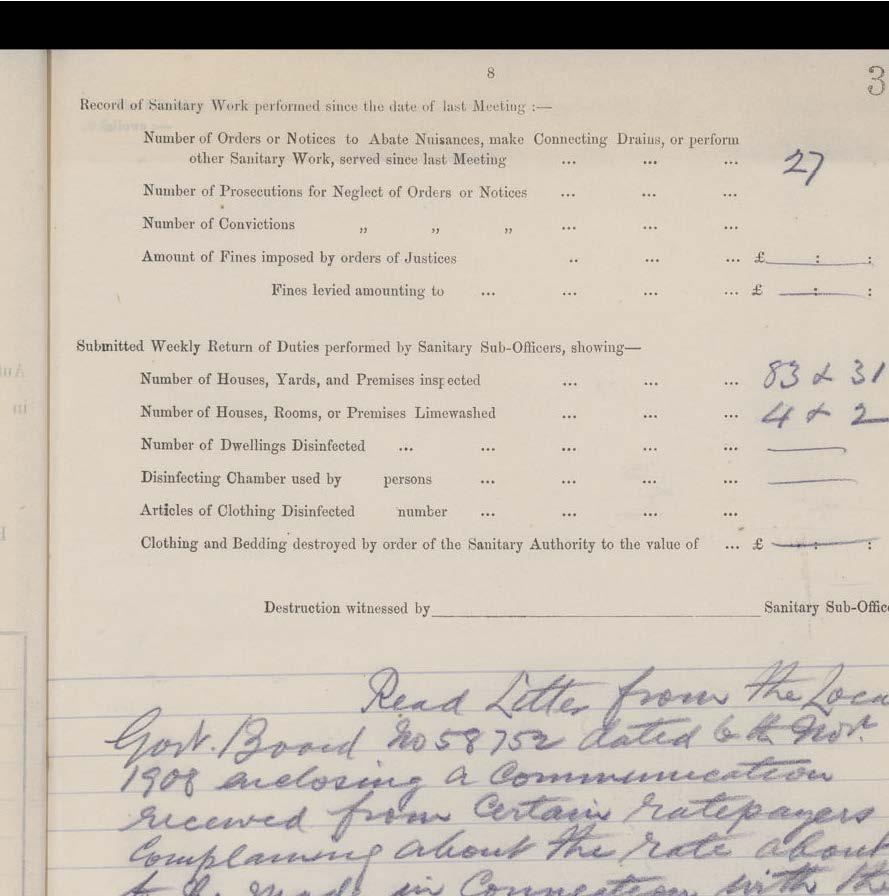 8
3
Record of Sanitary Work performed since the date of last Meeting :—
Number of Orders or Notices to Abate Nuisances, make Connecting Drains, or perform
other Sanitary Work, served since last Meeting ... ... ... 27
Number of Prosecutions for Neglect of Orders or Notices ... ... ...
Number of Convictions „ „ „ ... ... ...
Amount of Fines imposed by orders of Justices .. ... ... £ : :
Fines levied amounting to ... ... ... ... £ — : — :
Submitted Weekly Return of Duties performed by Sanitary Sub-Officers, showing—
Number of Houses, Yards, and Premises inspected ... ... ... 83 & 31
Number of Houses, Rooms, or Premises Limewashed ... ... ... 4 & 2
Number of Dwellings Disinfected ... ... ... ... ... —
Disinfecting Chamber used by persons ... ... ... ... —
Articles of Clothing Disinfected number ... ... ... ...
Clothing and Bedding destroyed by order of the Sanitary Authority to the value of ... £ — : — :
Destruction witnessed by Sanitary Sub-Offic
Read Letter from the Loca
Govt. Board No 58752 dated 6th Nov.
1908 enclosing a Communication
received from Certain ratepayers
Complaining about the rate about
to be made in Connection with th